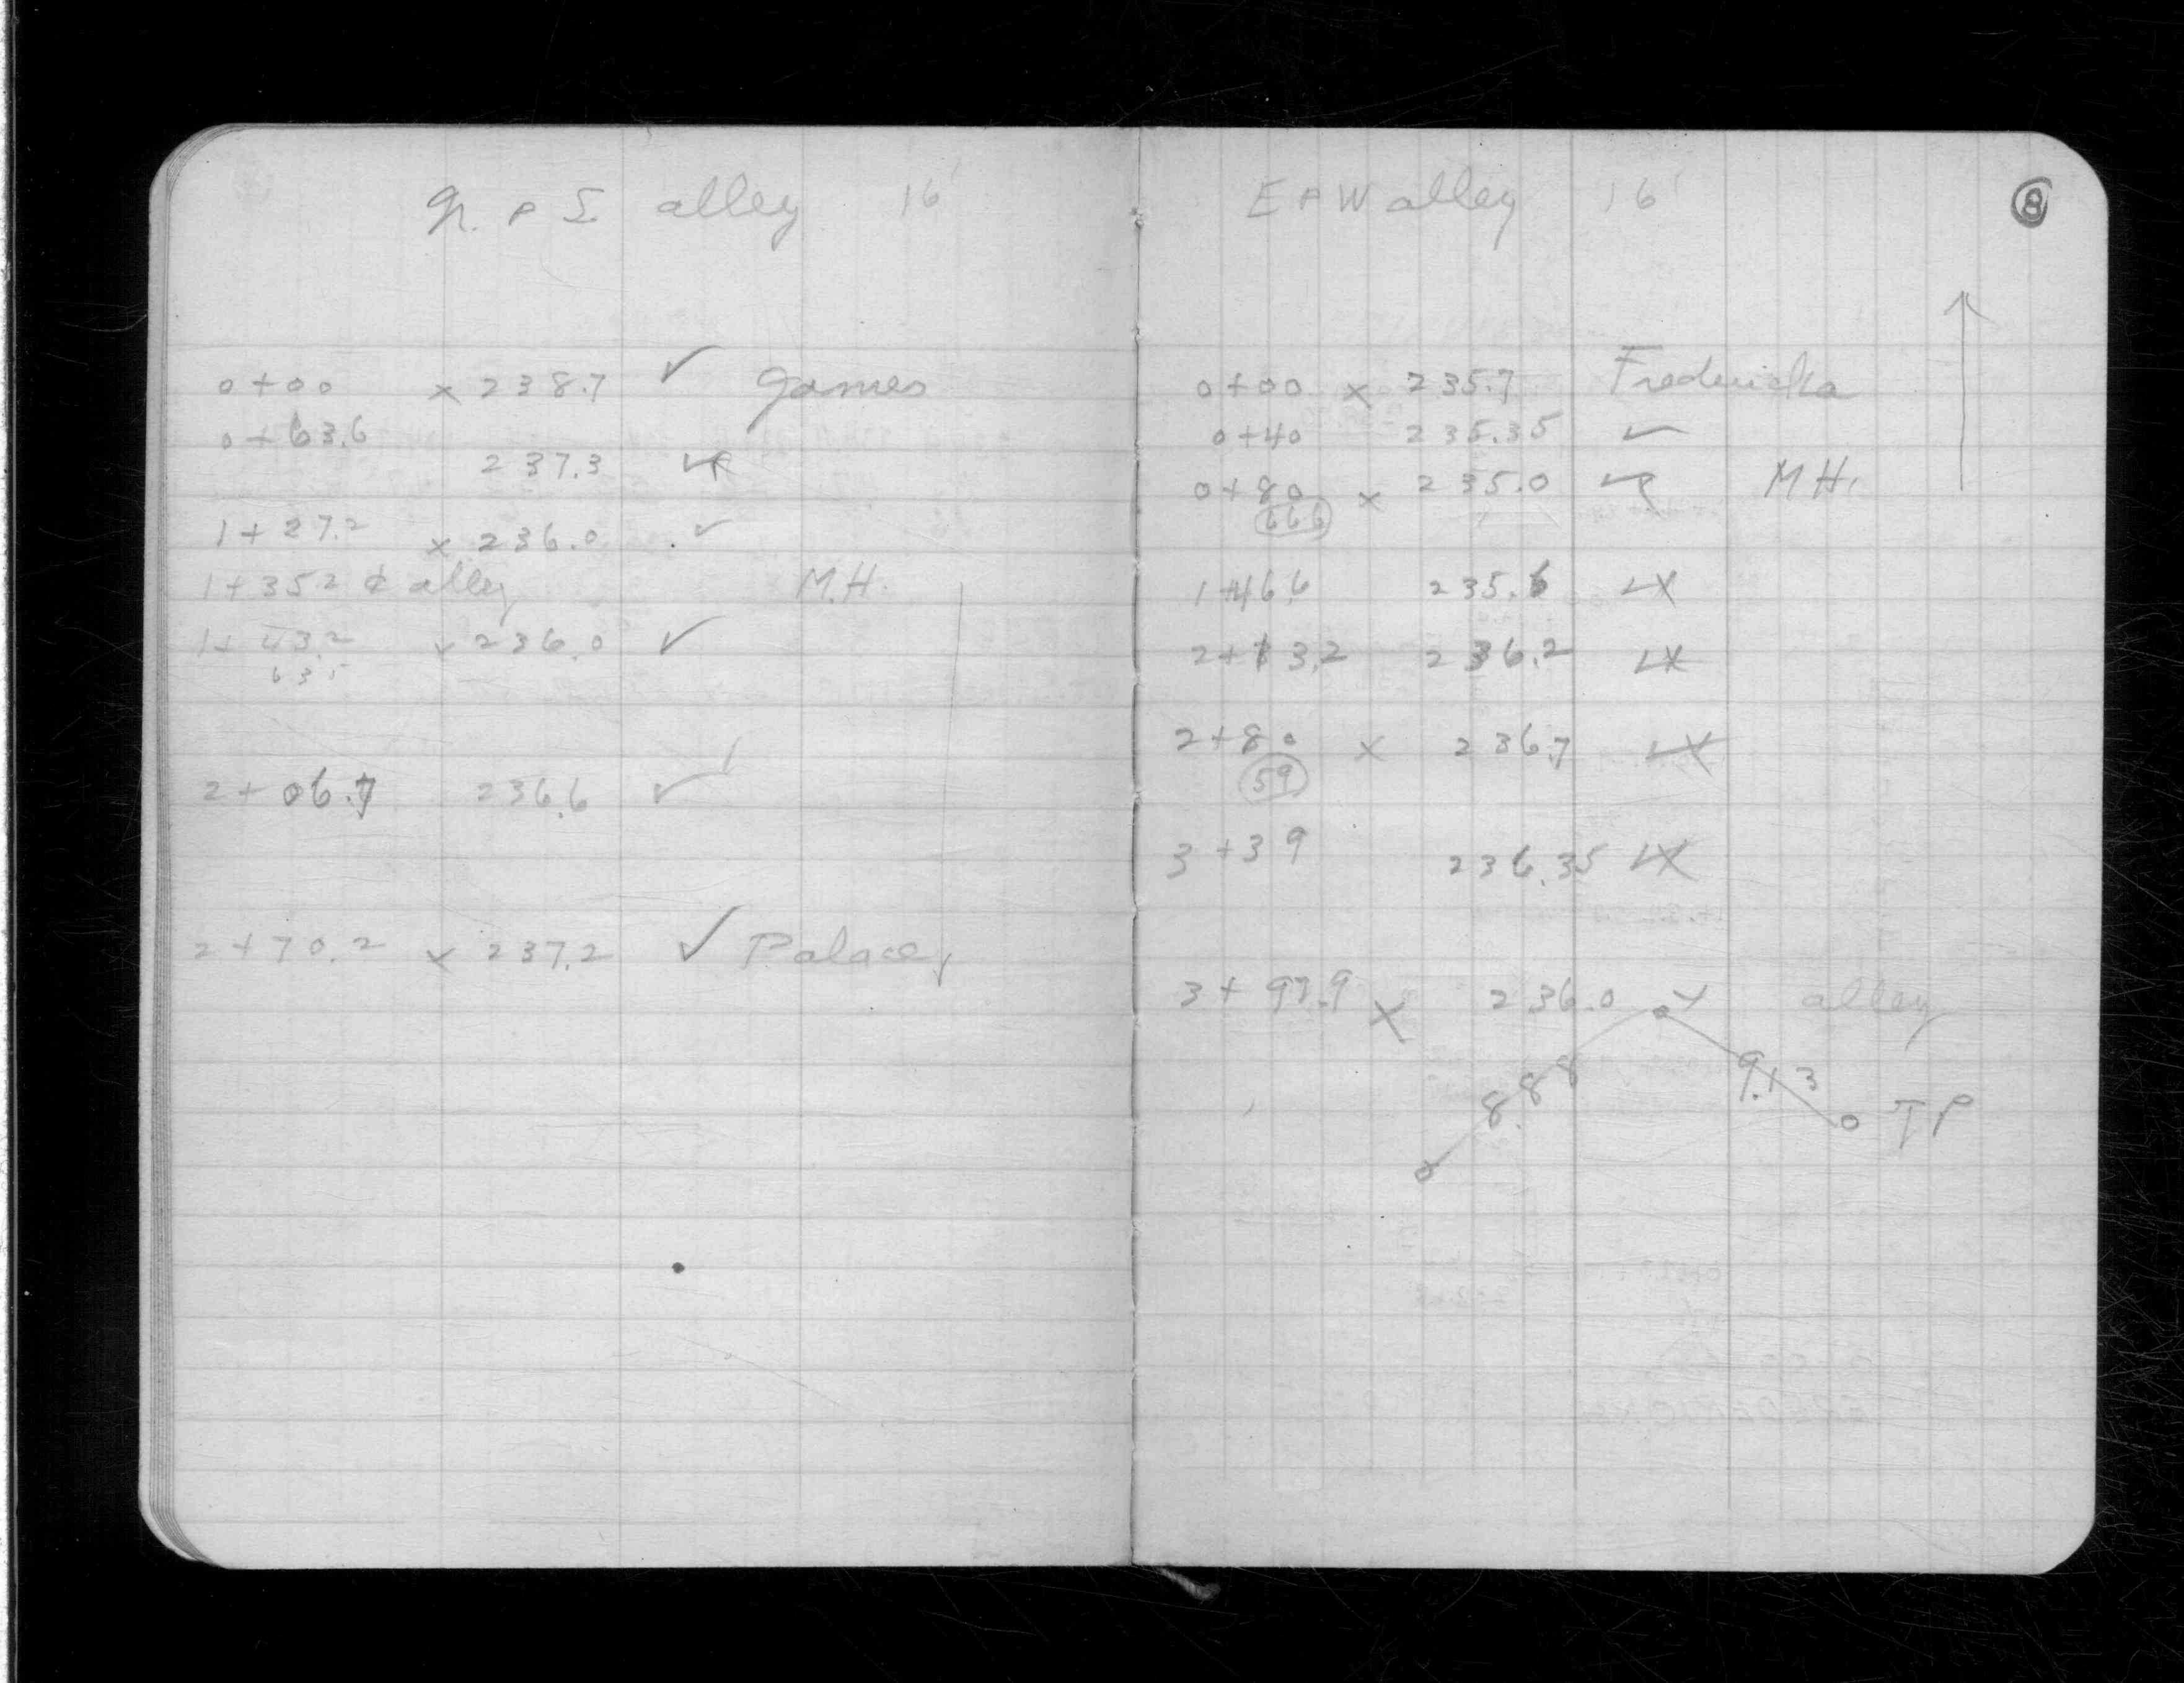 N. & S alley 16'
0+00 x 238.7 ✓ James
0+63.6
237.3 ✓
1+27.2 x 236.0 ✓
1+352 ¢ alley M.H.
1+43.2 x 236.0 ✓
635
2+06.7 236.6 ✓
2+70.2 x 237.2 ✓ Palace
E & W alley 16'
8
0+00 x 235.7 Fredericka
0+40 235.35 ✓
0+80 x 235.0 ✓ M.H.
666
1+466 235.6 ✓x
2+13.2 236.2 ✓x
2+80 x 236.7 ✓x
59
3+39 236.35 ✓x
3+97.9 x 236.0 ✓ alley
8.88
9.13
TP